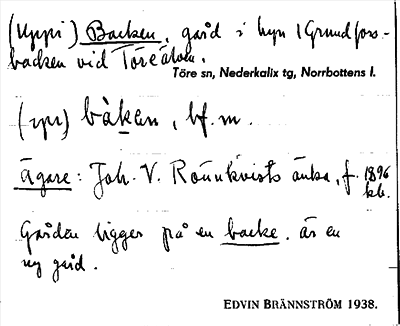 (Uppi) Backen, gård i byn (Grundfors-
backen vid Töreälven.
Töre sn, Nederkalix tg, Norrbottens l.
(upi) båken, bf. m.
Ägare: Joh. V. Rönnkvists änka, f. 1896
kb.
Gården ligger på en backe. är en
ny gård.
EDVIN BRÄNNSTRÖM 1938.